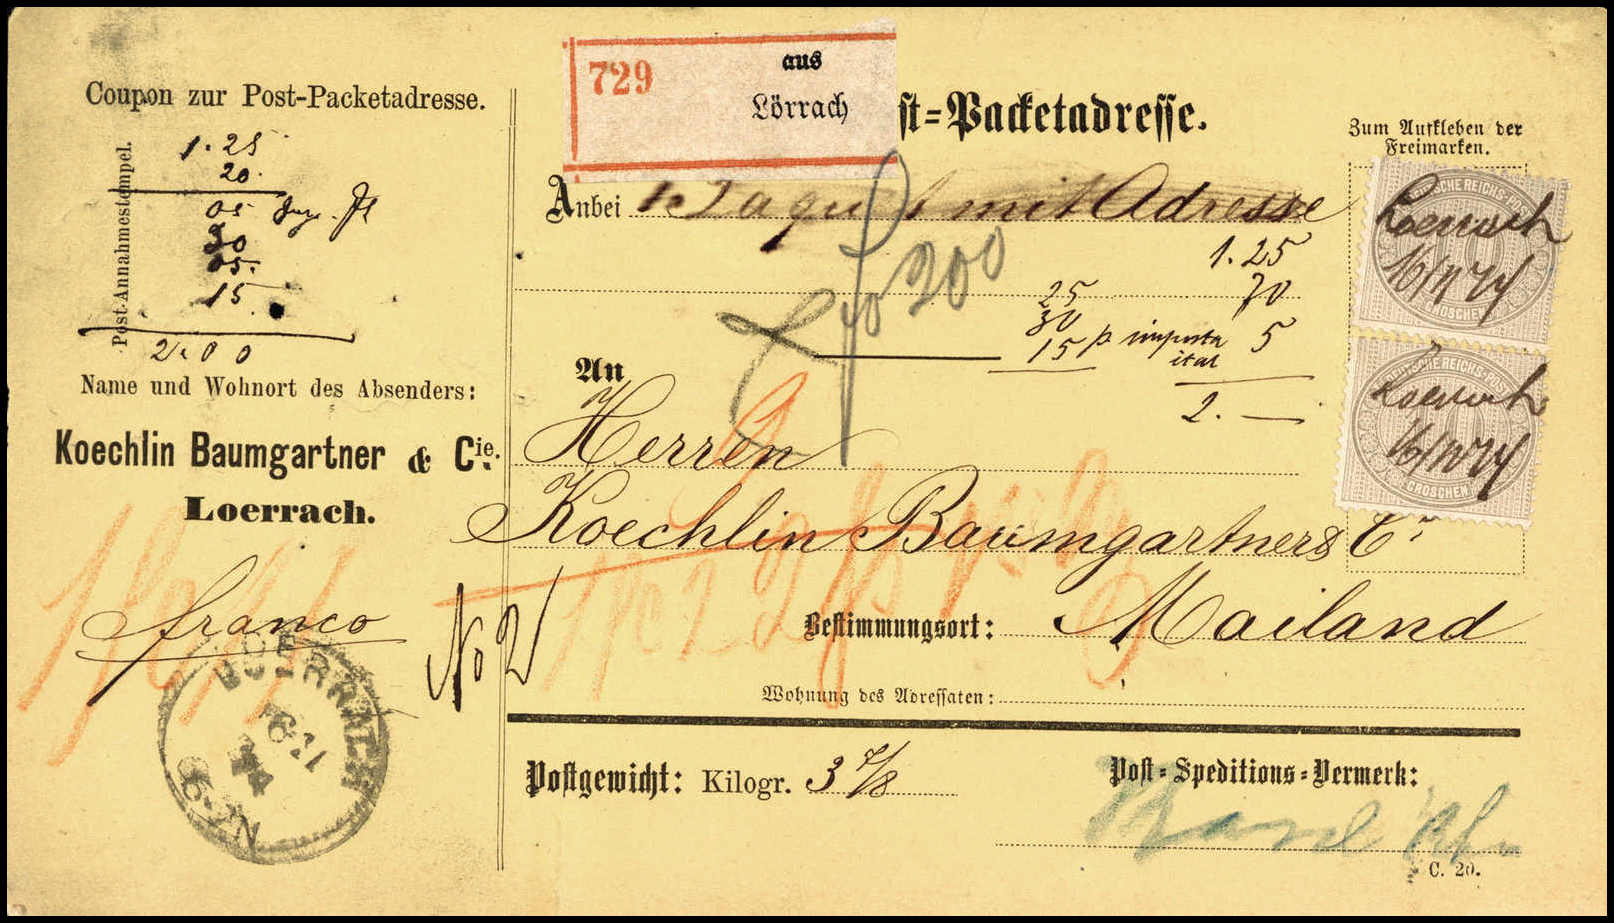 Coupon zur Post-Packetadresse.
Post-Annahmestempel.
1.25
20.
05
30
05.
15
2.00
Name und Wohnort des Absenders:
Koechlin Baumgartner & Cie.
Loerrach.
franco
LOERRACH
16 11
74
8-N
No 2
729
aus
Lörrach
st-Packetadresse.
Anbei 1 Paquet mit Adresse
200
1.25
25 70
30
15 p imposta ital 5
2. —
An
Herren
Koechlin Baumgartner & Cie
Bestimmungsort: Mailand
Wohnung des Adressaten:
Postgewicht: Kilogr. 3 7/8
Post-Speditions-Vermerk:
Basel
C. 20.
Zum Aufkleben der
Freimarken.
DEUTSCHE REICHS-POST
Loerrach
16/11 74
GROSCHEN
DEUTSCHE REICHS-POST
Loerrach
16/11 74
GROSCHEN